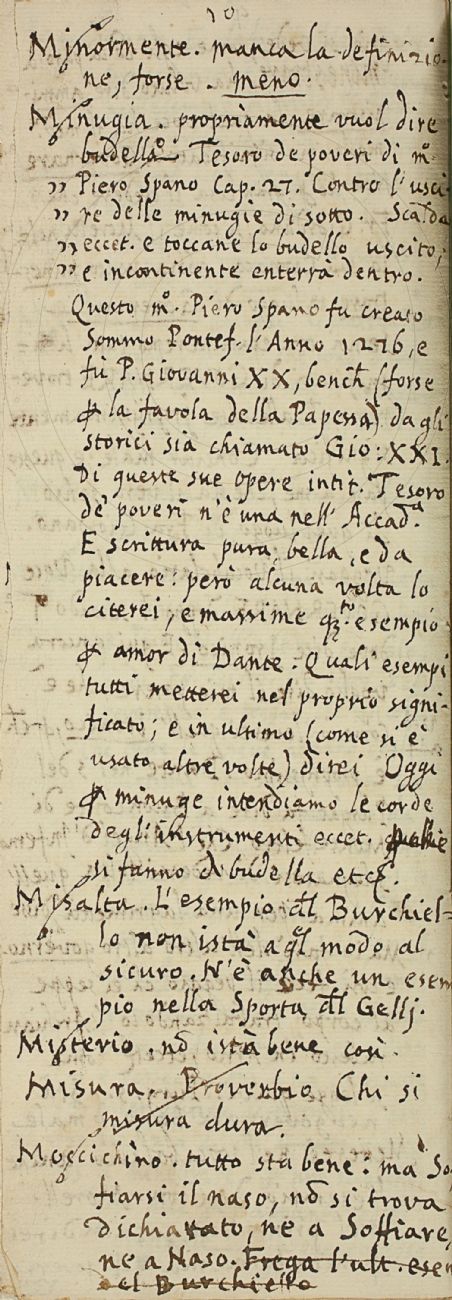 10
Minormente. manca la definizio-
ne, forse. meno.
Minugia. propriamente vuol dire
budella. Tesoro de poveri di mº
" Piero Spano Cap. 27. Contro l'usci-
" re delle minugie di sotto. Scalda
" eccet. e toccane lo budello uscito,
" e incontinente enterrà dentro.
Questo mº. Piero Spano fu creato
Sommo Pontef. l'Anno 1276, e
fù P. Giovanni XX, bench (forse
ꝑ la favola della Papessa) dagli
storici sia chiamato Gio: XXI.
Di queste sue opere intit. Tesoro
de' poveri n'è una nell' Accadª
E scrittura pura, bella, e da
piacere: però alcuna volta lo
citerei, e massime qᵗᵒ esempio
ꝑ amor di Dante. Quali esempi
tutti metterei nel proprio signi-
ficato; e in ultimo (come si è
usato altre volte) direi Oggi
ꝑ minuge intendiamo le corde
degl' instrumenti eccet. che
si fanno di budella etc.
Misalta. L'esempio dl Burchiel-
lo non istà a ql modo al
sicuro. N'è anche un esem
pio nella Sporta dl Gellj.
Misterio. nō istà bene così.
Misura. Proverbio Chi si
misura dura.
Moccichino. tutto sta bene: ma So
fiarsi il naso, nō si trova
dichiarato, ne a Soffiare,
ne a Naso. Frega l'ult. esem
del Burchiello